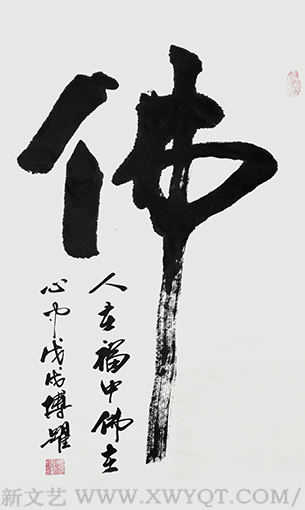 佛
人在福中佛在
心中戊戌博耀
新文艺 / WWW.XWYQT.COM/